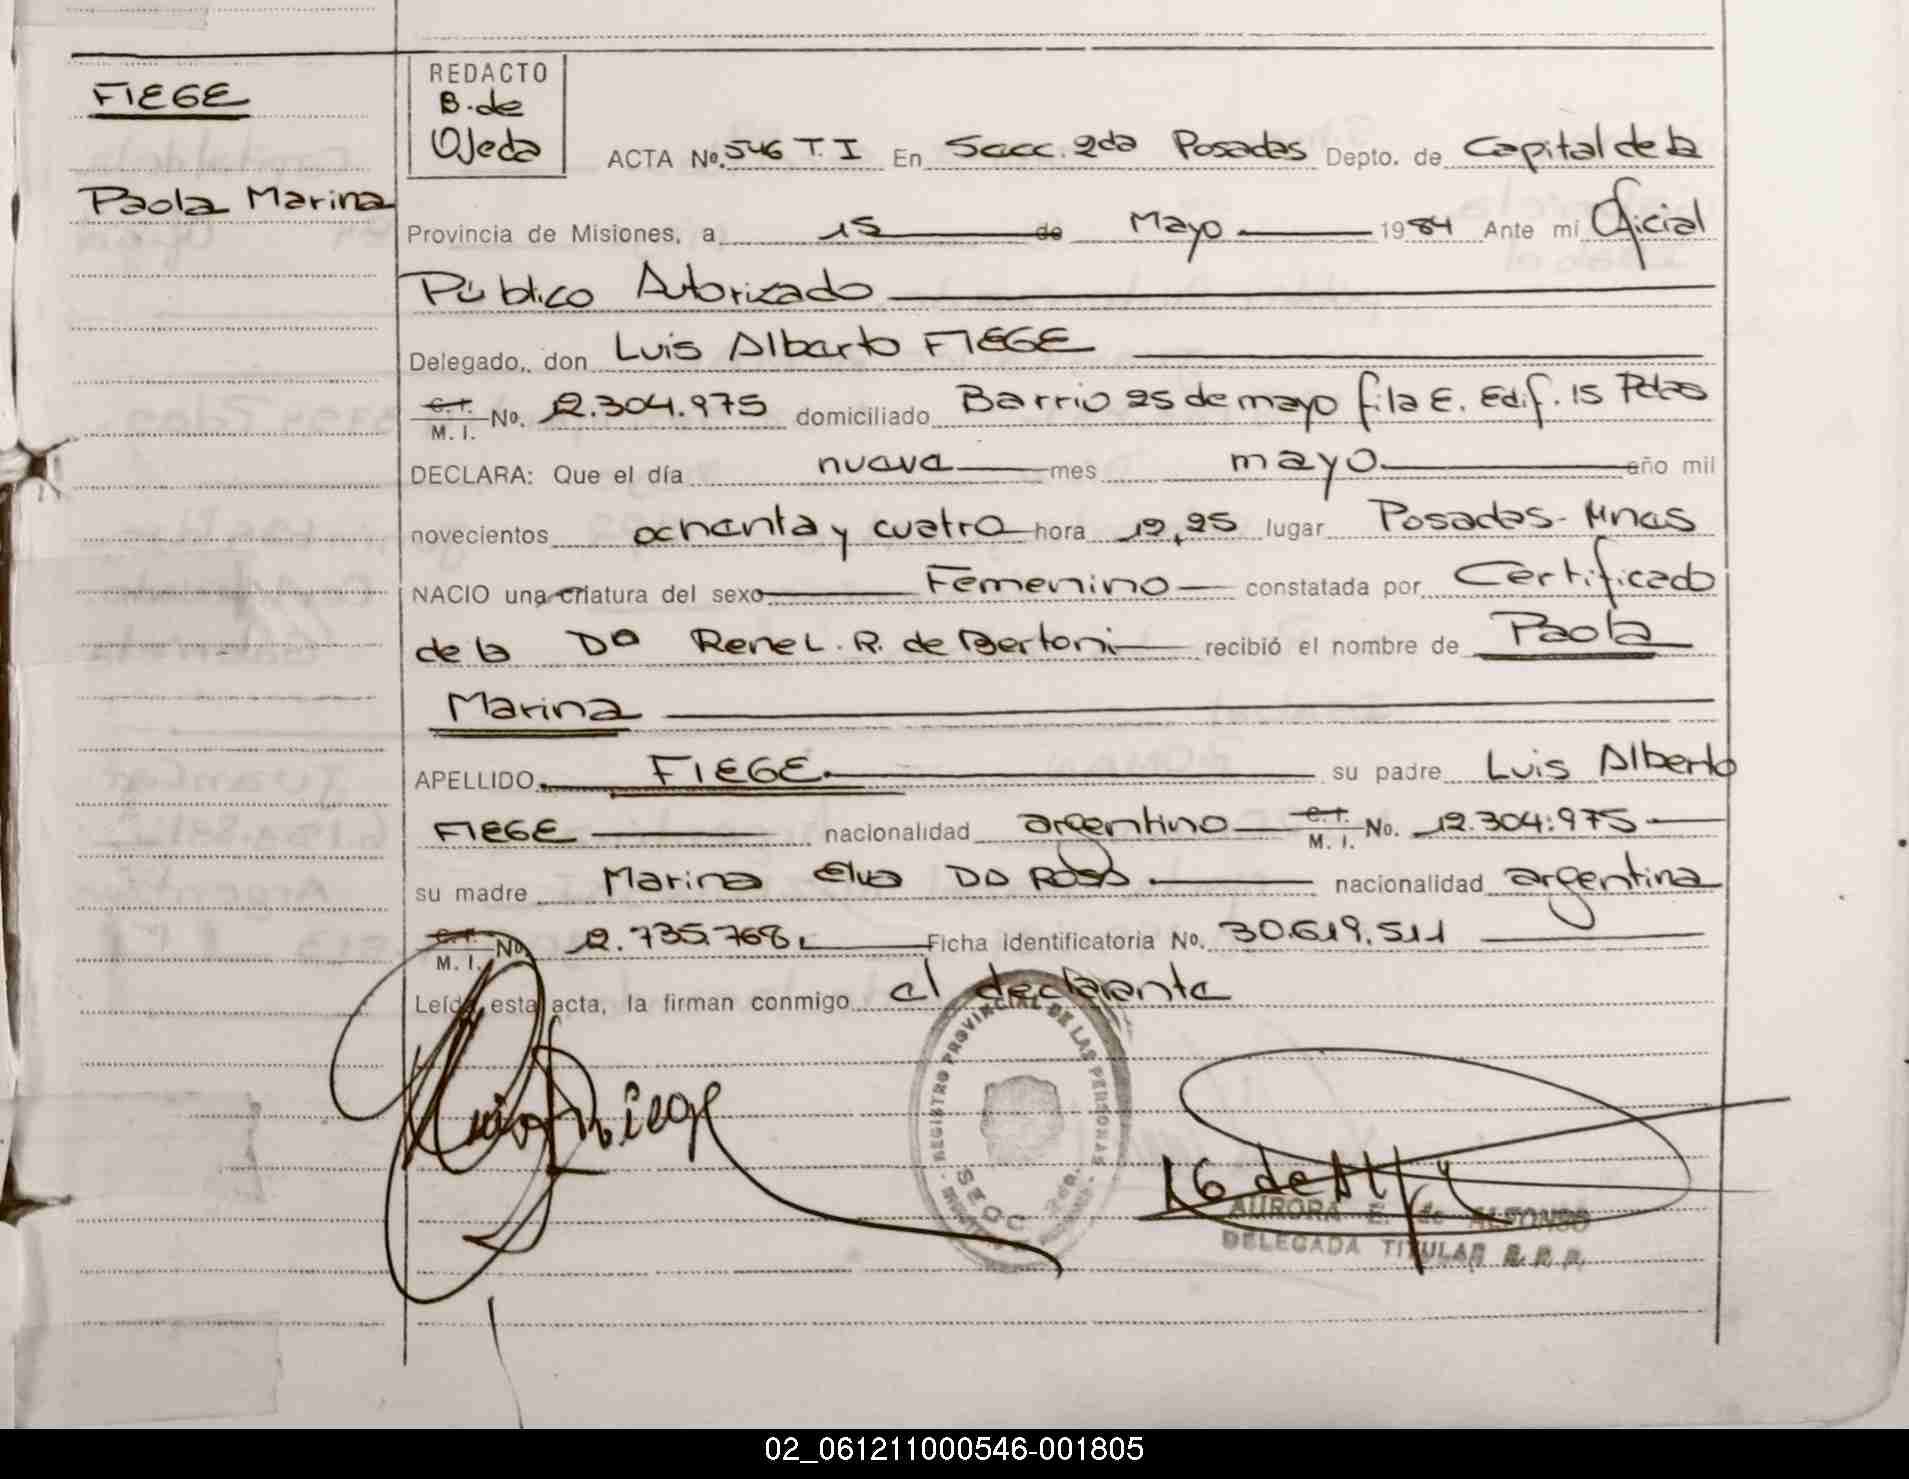 FIEGE
Paola Marina
REDACTO
B. de
Ojeda
ACTA No. 546 T. I En Secc. 2da Posadas Depto. de Capital de la
Provincia de Misiones, a 15 de Mayo 1984 Ante mí Oficial
Público Autorizado
Delegado, don Luis Alberto FIEGE
C. I. M. I. No. 12.304.975 domiciliado Barrio 25 de mayo fila E. Edif. 15 Pdas
DECLARA: Que el día nueve mes mayo año mil
novecientos ochenta y cuatro hora 12,25 lugar Posadas - Mnes
NACIO una criatura del sexo Femenino constatada por Certificado
de la Da Rene L. R. de Bertoni recibió el nombre de Paola
Marina
APELLIDO FIEGE su padre Luis Alberto
FIEGE nacionalidad argentino C. I. M. I. No. 12.304.975
su madre Marina Elva DA ROSA nacionalidad argentina
C. I. M. I. No. 12.735.768 Ficha identificatoria No. 30.619.511
Leída esta acta, la firman conmigo el declarante
REGISTRO PROVINCIAL DE LAS PERSONAS
SECC 2da.
AURORA E. de ALFONSO
DELEGADA TITULAR R. P. P.
02_061211000546-001805